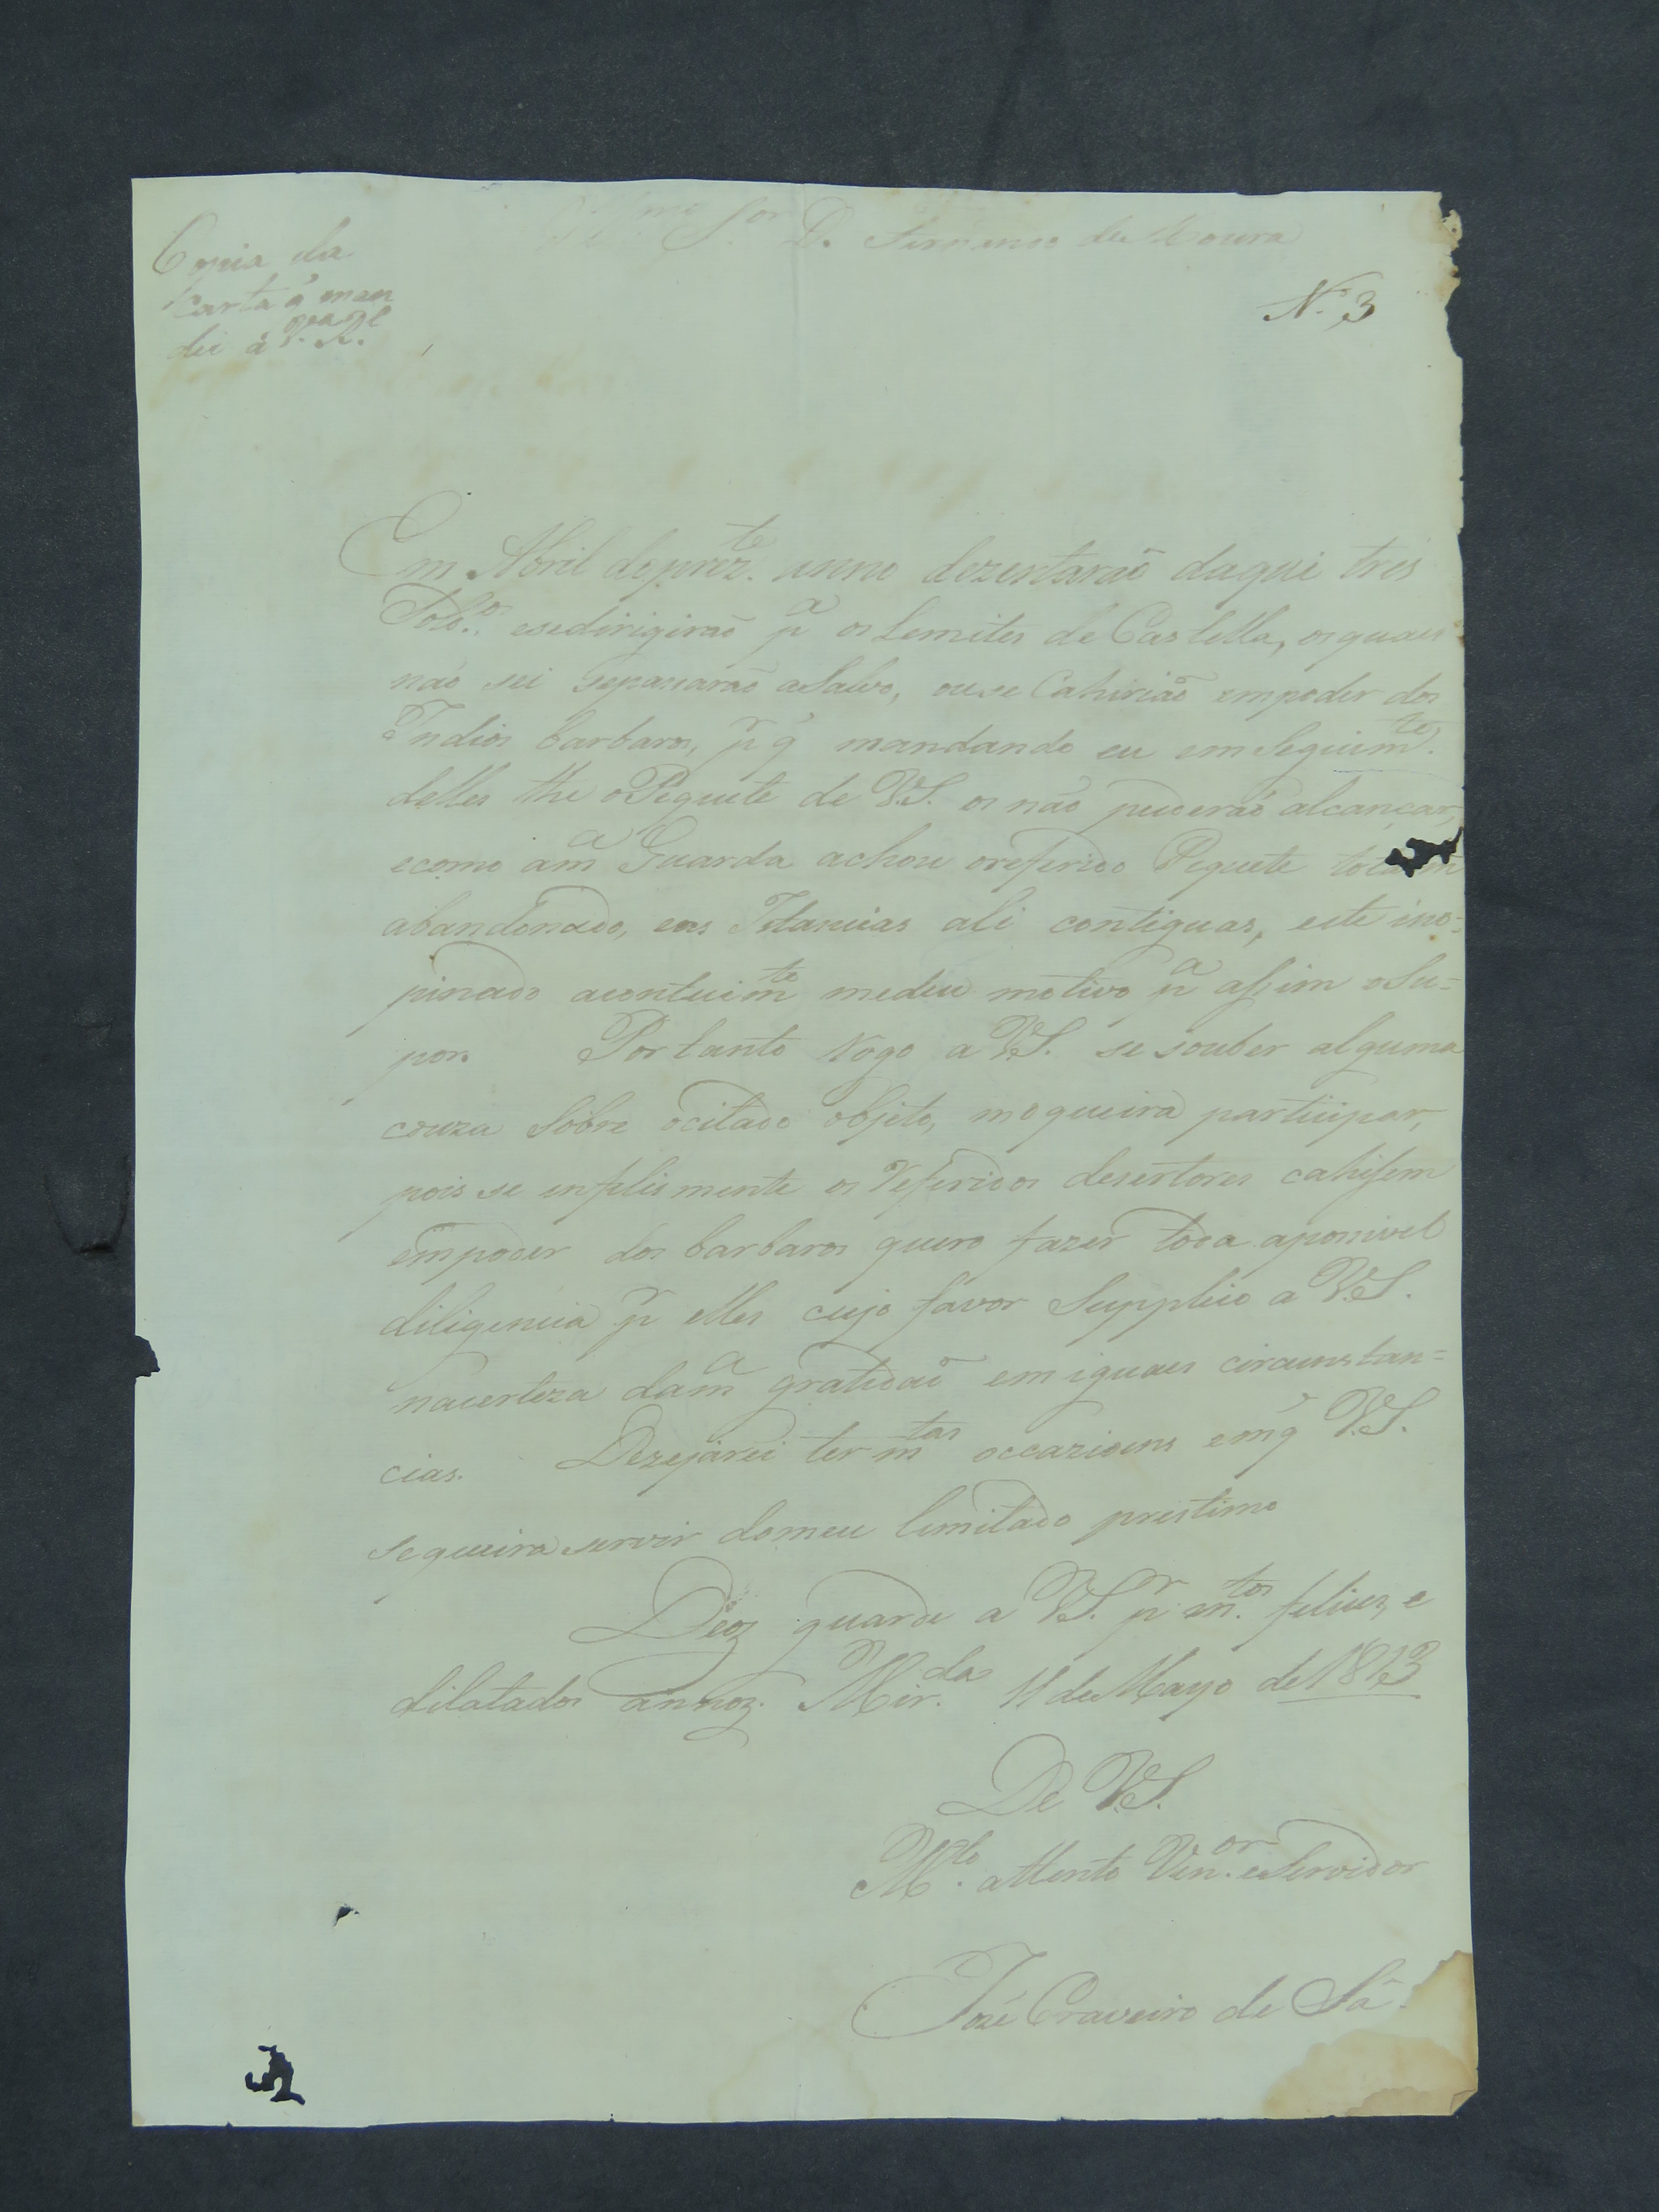 Illmo Sor D. Fermino de Moura
Copia da
Carta q̃ man
dei á Va Rl
N. 3
Em Abril depreze. anno dezertaraõ daqui tres
Soldos. esedirigiraõ pa os Lemites de Castella, os quaes
naõ sei sepasaraõ aSalvo, ouse Cahiriaõ empoder dos
Indios barbaros, pr q̃ mandando eu emSeguimto.
delles the oPiquete de V.S. os naõ puderaõ alcançar,
ecomo ama Guarda achou oreferido Piquete
abandonado, eas Estancias ali contiguas, este ino=
pinado acontecimto medeu motivo pa assim oSu=
por. Portanto rogo a V.S. se souber alguma
couza Sobre ocitado objeto, moqueira participar,
pois se infelismente os referidos desertores cahissem
empoder dos barbaros quero fazer toda aposivel
diligencia pr elles cujo favor Supplico a V.S.
nacerteza dama gratidaõ em iguaes circunstan=
cias. Dezejarei ter mtas occazioens emq̃ V.S.
sequeira servir domeu limitado prestimo
Deoz guarde a V.S. pr mtos. felices, e
dilatados annoz. Mirda. 11 de Mayo de 1813
De V.S.
Mto. attento Venor. eServidor
José Craveiro de Sá